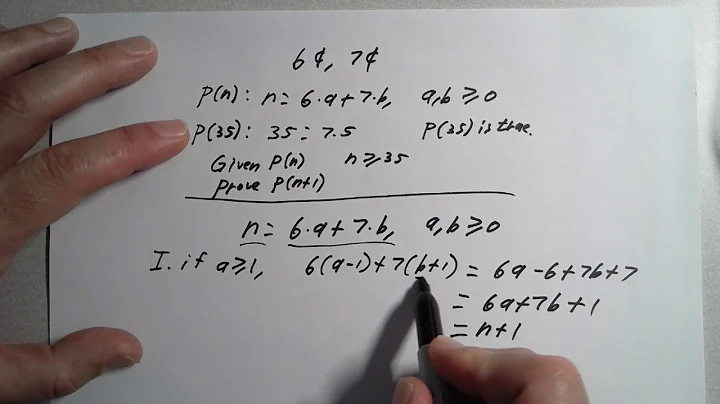 6¢, 7¢
P(n): n=6·a+7·b, a,b≥0
P(35): 35=7·5 P(35) is true.
Given P(n) n≥35
prove P(n+1)
n=6·a+7·b, a,b≥0
I. if a≥1, 6(a-1)+7(b+1) = 6a-6+7b+7
= 6a+7b+1
= n+1